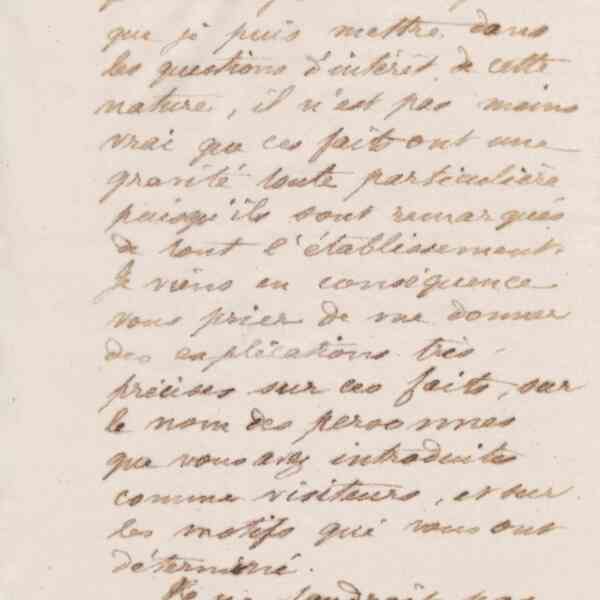 que je puis mettre dans
les questions d'intérêt de cette
nature, il n'est pas moins
vrai que ces faits ont une
gravité toute particulière
puisqu'ils sont remarqués
de tout l'établissement.
Je viens en conséquence
vous prier de me donner
des explications très
précises sur ces faits, sur
le nom des personnes
que vous avez introduites
comme visiteurs, et sur
les motifs qui vous ont
déterminé.
Je ne voudrais pas